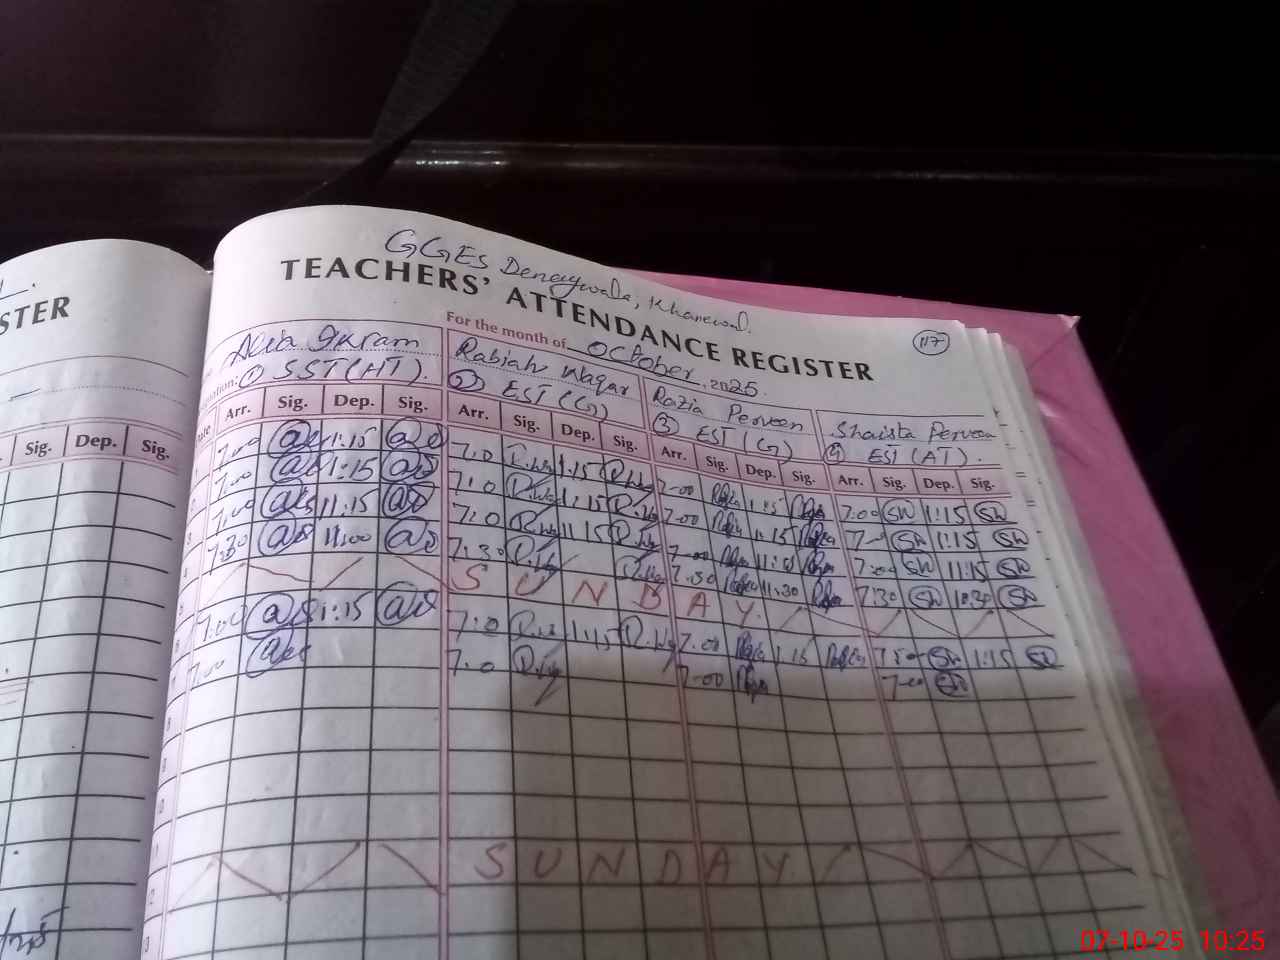 STER
Sig. Dep. Sig.
GGES Denaywala, Khanewal.
TEACHERS' ATTENDANCE REGISTER
117
For the month of October, 2025.
Alia Ikram
① SST (HT).
Rabiah Waqar
② EST (G)
Razia Perveen
③ EST (G)
Shaista Perveen
④ EST (AT).
Arr. Sig. Dep. Sig. Arr. Sig. Dep. Sig. Arr. Sig. Dep. Sig. Arr. Sig. Dep. Sig.
7:00 1:15 7:0 1:15 7-00 1:15 7:00 SH 1:15 SH
7:00 1:15 7:0 R.Wq 1:15 R.Wq 7-00 1:15 SH 1:15 SH
7:00 11:15 7:0 R.Wq 11:15 R.Wq 7-00 11:15 SH 11:15 SH
7:30 11:00 7:30 R.Wq R.Wq 7:30 11:30 7:30 SH 10:30 SH
SUNDAY
7:00 1:15 7:0 1:15 R.Wq 7:00 1:15 SH 1:15 SH
7:00 7:0 R.Wq 7-00 SH
SUNDAY
07-10-25 10:25